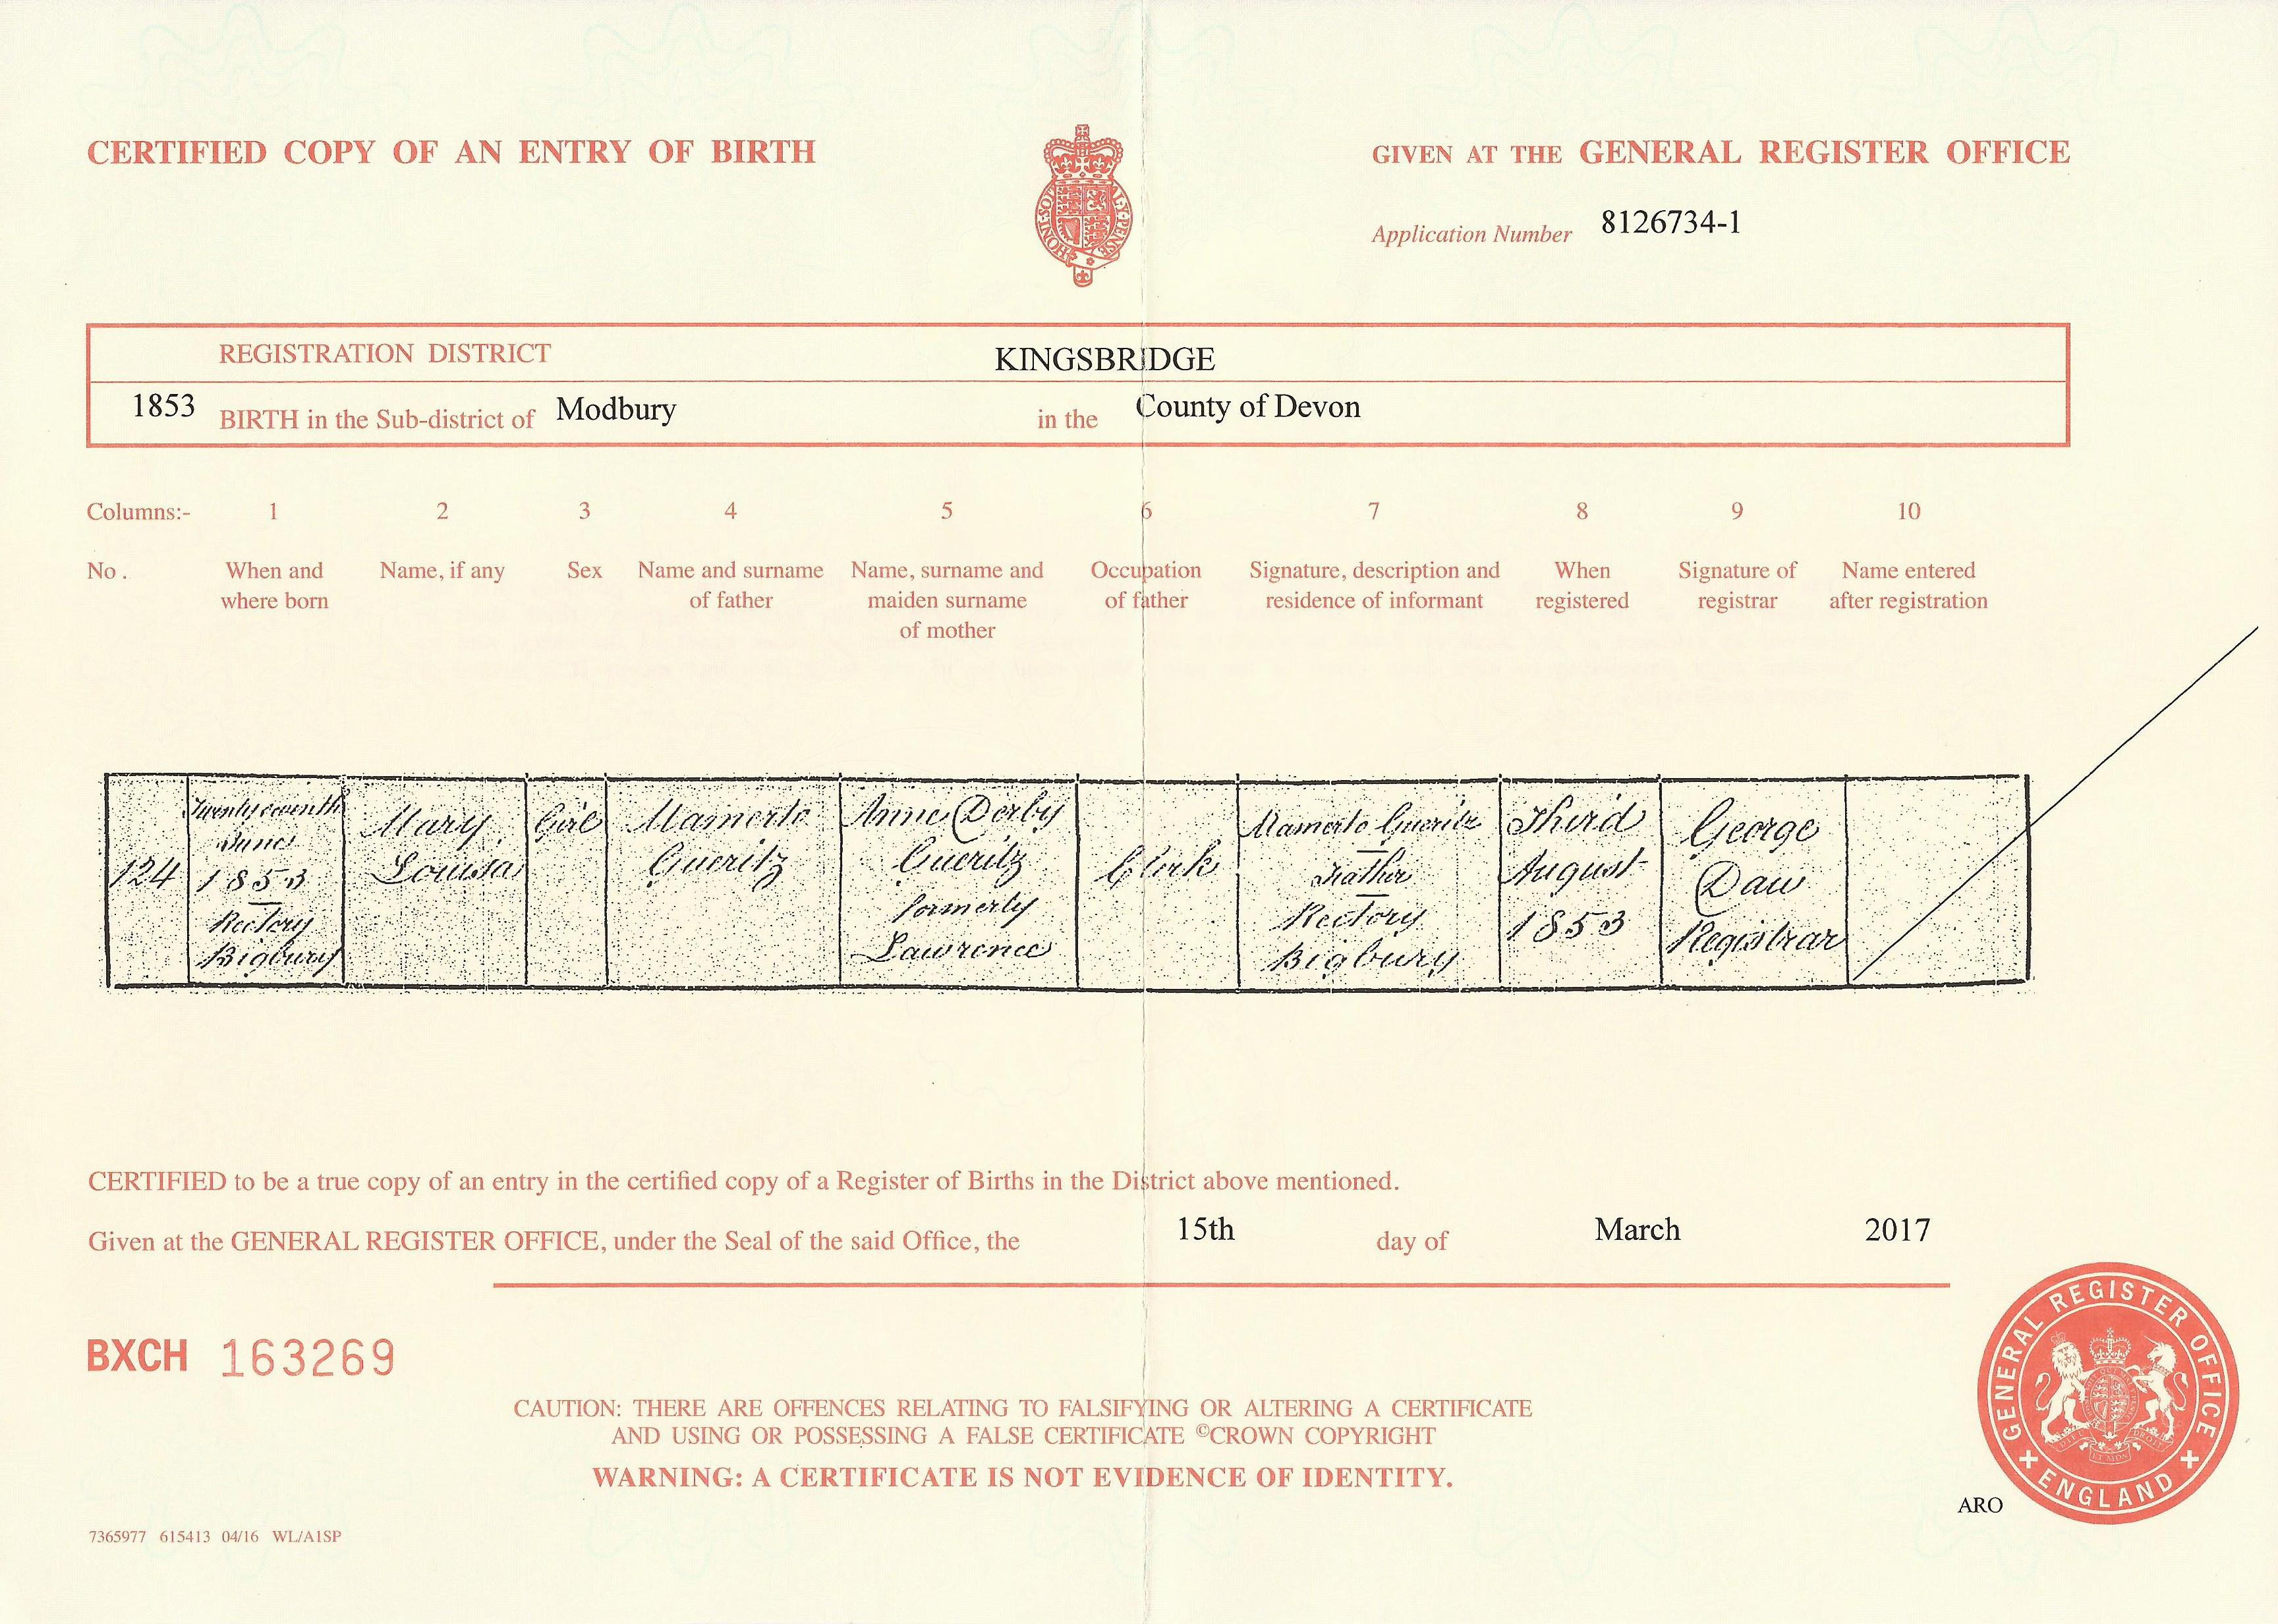 CERTIFIED COPY OF AN ENTRY OF BIRTH
GIVEN AT THE GENERAL REGISTER OFFICE
HONI·SOI
AL·Y·PENSE
Application Number 8126734-1
REGISTRATION DISTRICT KINGSBRIDGE
1853 BIRTH in the Sub-district of Modbury in the County of Devon
Columns:- 1 2 3 4 5 6 7 8 9 10
No . When and Name, if any Sex Name and surname Name, surname and Occupation Signature, description and When Signature of Name entered
where born of father maiden surname of father residence of informant registered registrar after registration
of mother
124
Twenty seventh
June
1853
Rectory
Bigbury
Mary
Louisa
Girl
Mamerto
Gueritz
Anne Derby
Gueritz
formerly
Lawrence
Clerk
Mamerto Gueritz
Father
Rectory
Bigbury
Third
August
1853
George
Daw
Registrar
CERTIFIED to be a true copy of an entry in the certified copy of a Register of Births in the District above mentioned.
Given at the GENERAL REGISTER OFFICE, under the Seal of the said Office, the 15th day of March 2017
BXCH 163269
CAUTION: THERE ARE OFFENCES RELATING TO FALSIFYING OR ALTERING A CERTIFICATE
AND USING OR POSSESSING A FALSE CERTIFICATE ©CROWN COPYRIGHT
WARNING: A CERTIFICATE IS NOT EVIDENCE OF IDENTITY.
GENERAL REGISTER OFFICE
ENGLAND
ARO
7365977 615413 04/16 WL/A1SP